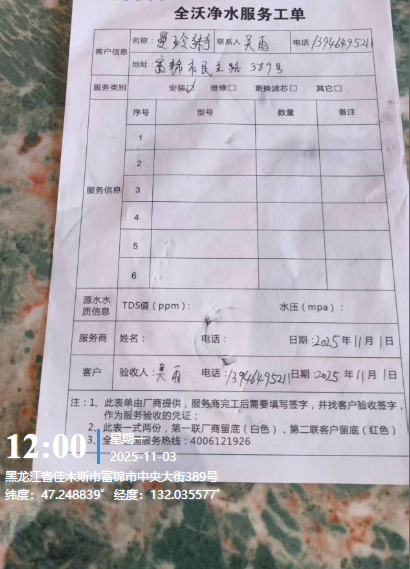 全沃净水服务工单
客户信息 名称：曼玲粥 联系人 吴雨 电话 13946495211
地址：富锦市民主路 389号
服务类别 安装☑ 维修□ 更换滤芯□ 其它□
服务信息 序号 型号 数量 备注
1
2
3
4
5
6
源水水质信息 TDS值（ppm）： 水压（mpa）：
服务商 姓名： 电话： 日期：2025年11月1日
客户 验收人：吴雨 电话：13946495211 日期：2025年11月1日
注：1、此表单由厂商提供，服务商完工后需要填写签字，并找客户验收签字，
作为服务验收的凭证；
2、此表一式两份，第一联厂商留底（白色），第二联客户留底（红色）
3、全 服务热线：4006121926
12:00
星期一
2025-11-03
黑龙江省佳木斯市富锦市中央大街389号
纬度：47.248839° 经度：132.035577°